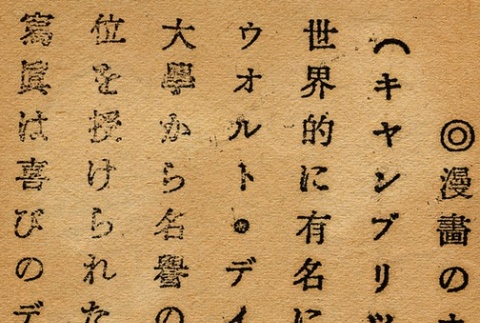 ◎漫畵の
（キヤンブリ
世界的に有名に
ウオルト・デイ
大學から名譽の
位を授けられた
寫眞は喜びのデ